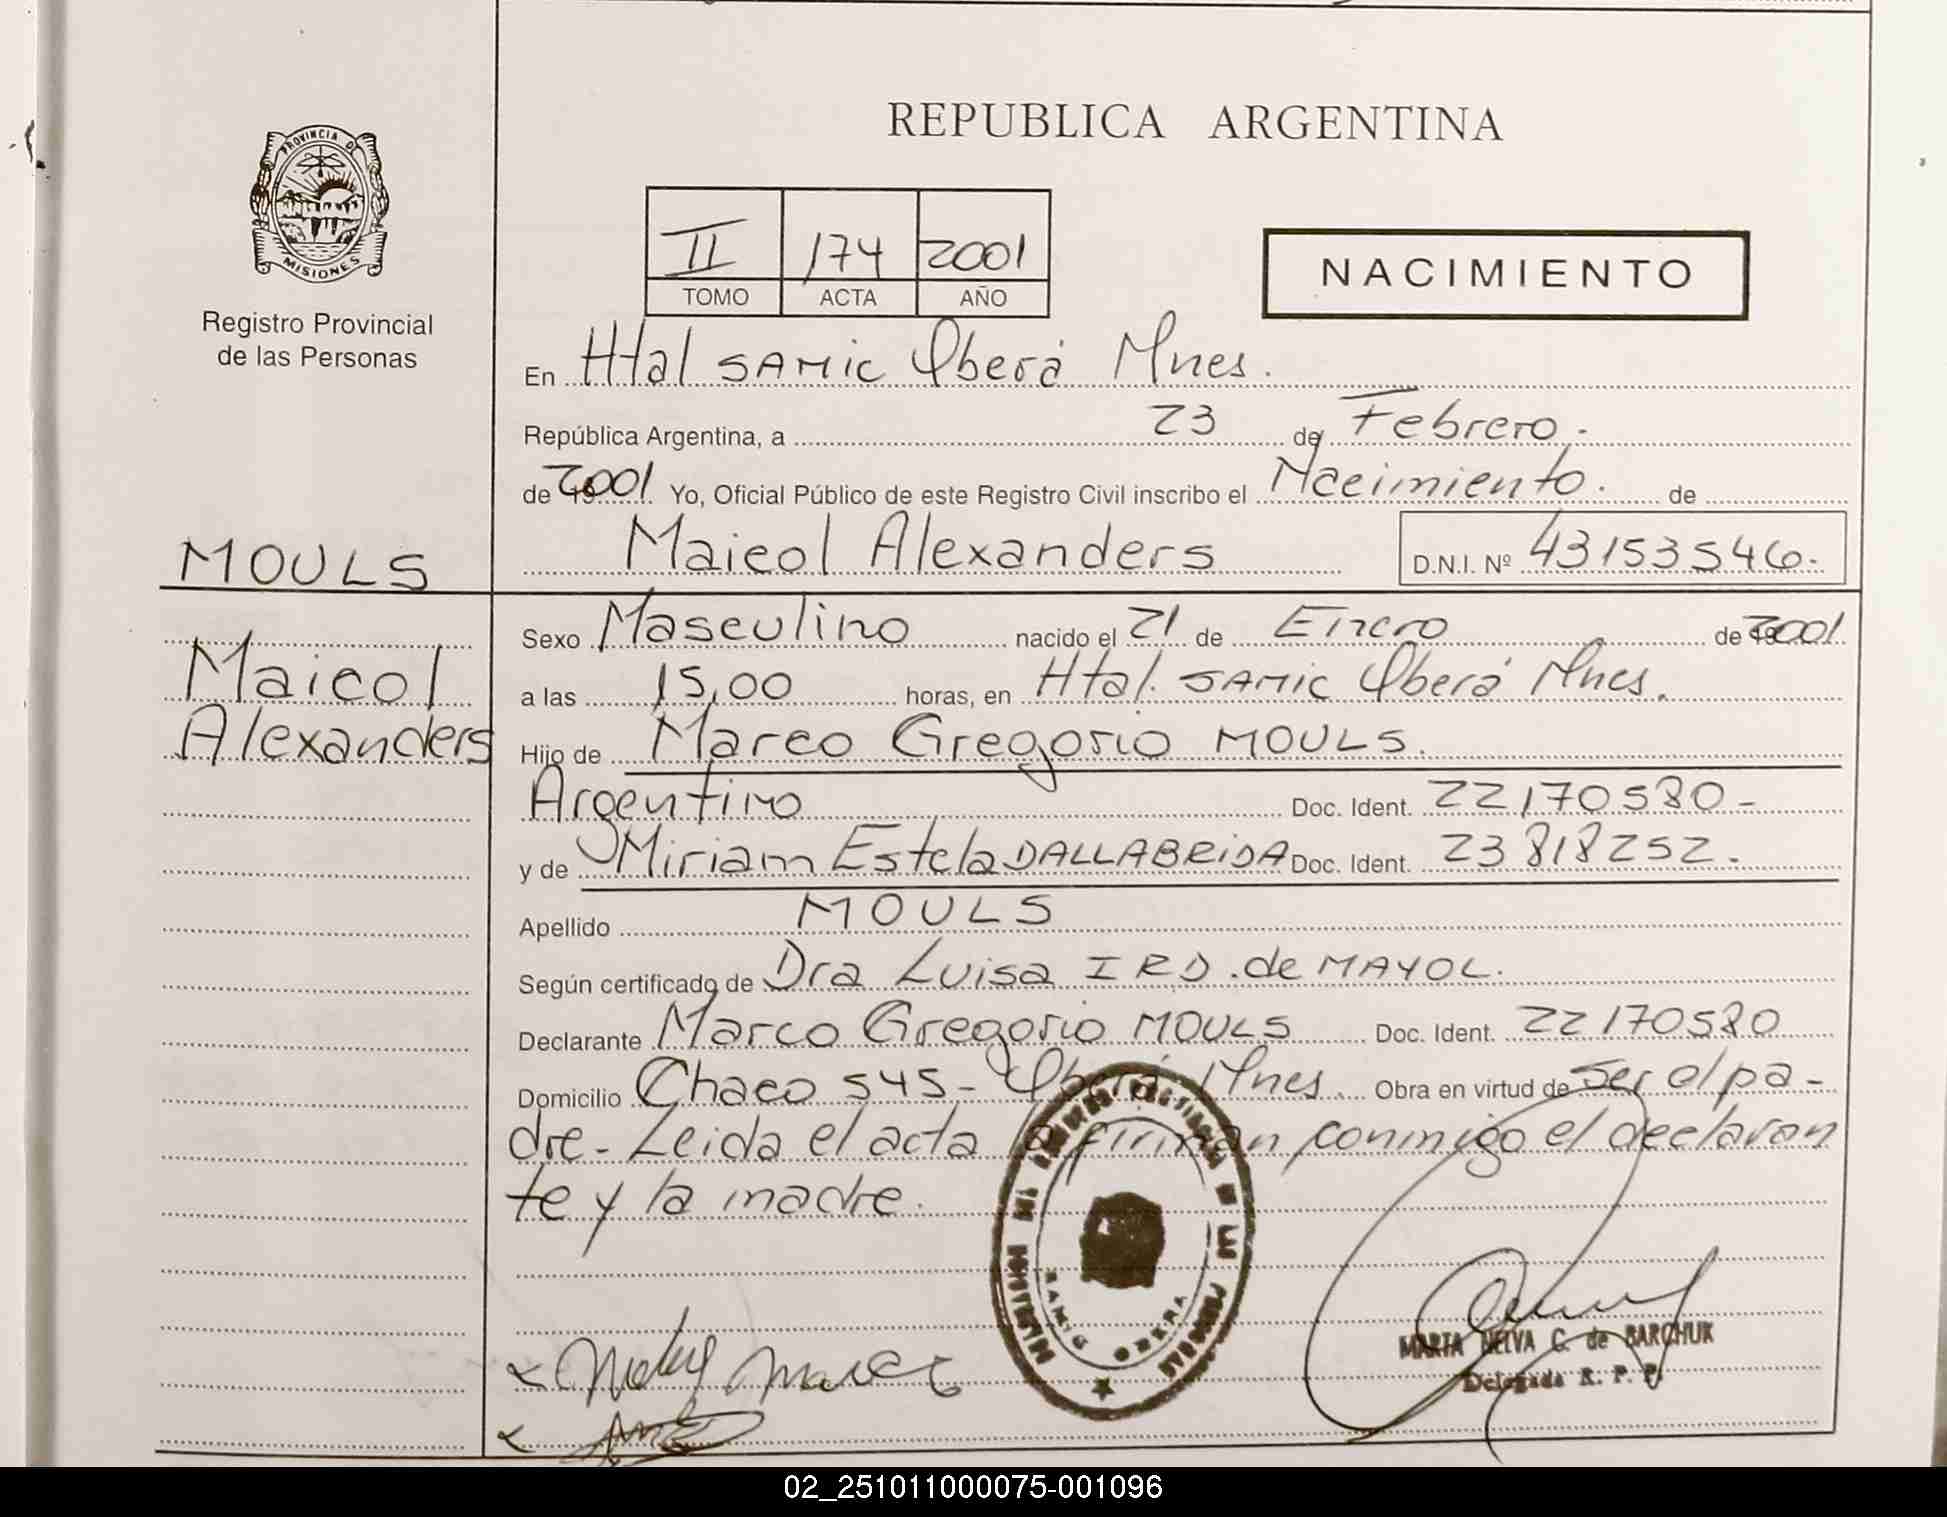 REPUBLICA ARGENTINA
PROVINCIA DE
MISIONES
Registro Provincial
de las Personas
II 174 2001
TOMO ACTA AÑO
NACIMIENTO
En Htal SAMIC Oberá Mnes.
República Argentina, a 23 de Febrero.
de 2001 Yo, Oficial Público de este Registro Civil inscribo el Nacimiento. de
MOULS
Maicol Alexanders D.N.I. Nº 43153546.
Maicol
Alexanders
Sexo Masculino nacido el 21 de Enero de 2001.
a las 15,00 horas, en Htal. SAMIC Oberá Mnes.
Hijo de Marco Gregorio MOULS.
Argentino Doc. Ident. 22170580-
y de Miriam Estela DALLABRIDA Doc. Ident. 23818252.
Apellido MOULS
Según certificado de Dra Luisa I R D. de MAYOL.
Declarante Marco Gregorio MOULS Doc. Ident. 22170580
Domicilio Chaco 545- Oberá Mnes. Obra en virtud de Ser el pa-
dre- Leida el acta la firman conmigo el declaran
te y la madre.
SAMIC OBERA
MARTA NELVA C. de BARCHUK
Delegada R. P. P.
02_251011000075-001096